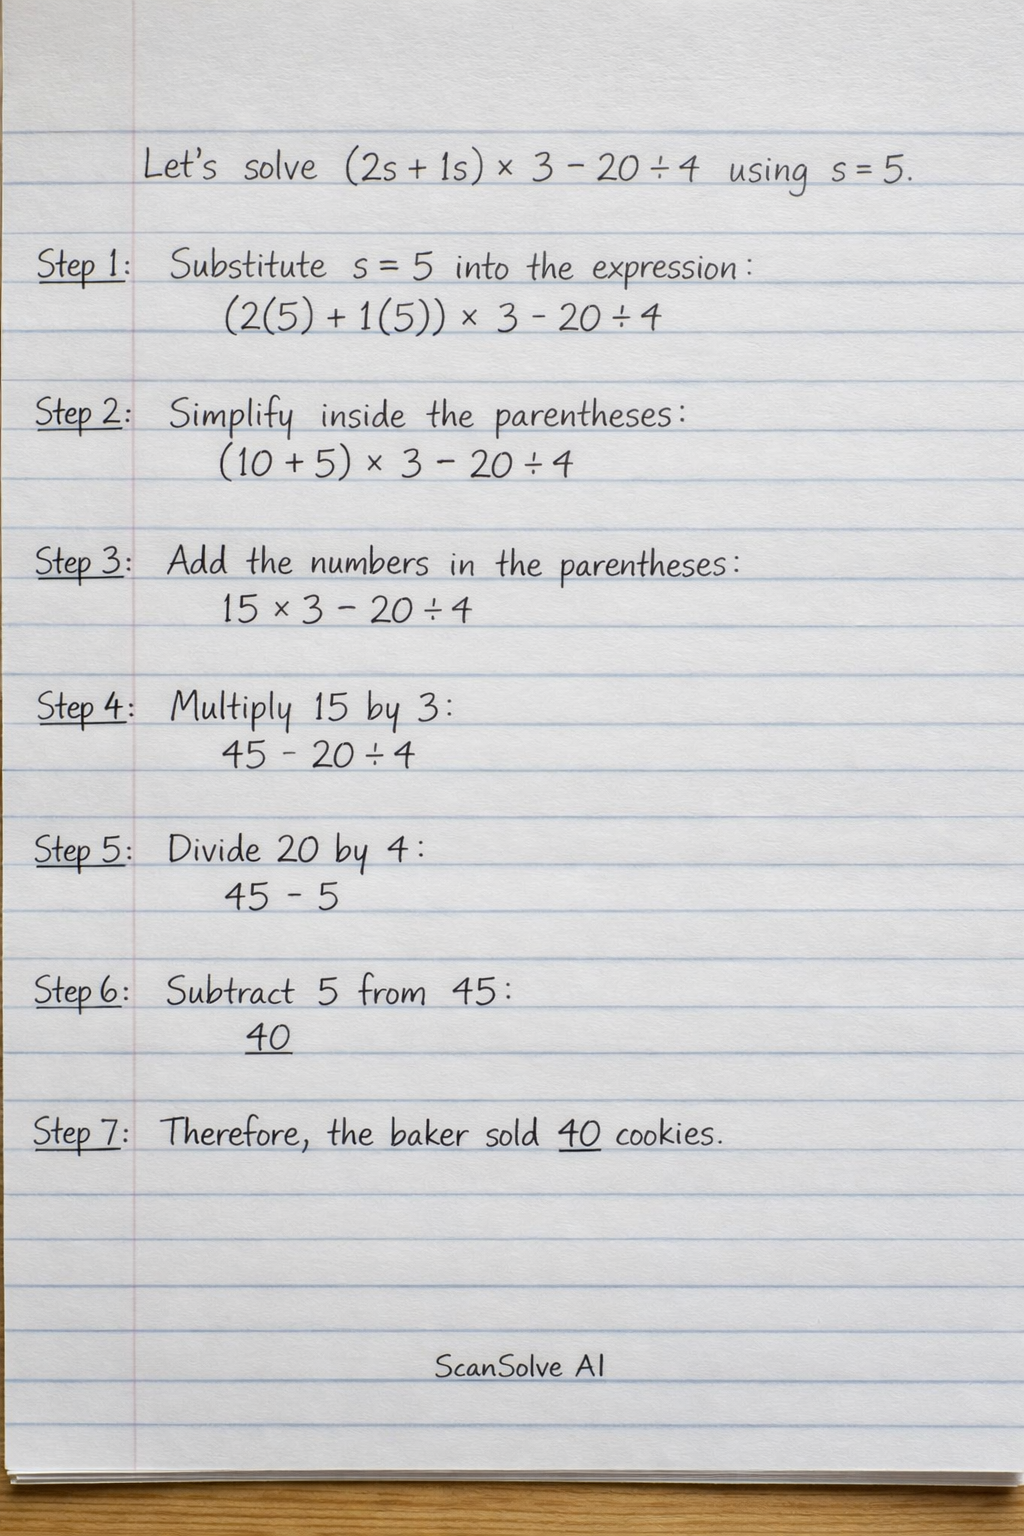 Let's solve (2s + 1s) × 3 − 20 ÷ 4 using s = 5.
Step 1: Substitute s = 5 into the expression:
(2(5) + 1(5)) × 3 − 20 ÷ 4
Step 2: Simplify inside the parentheses:
(10 + 5) × 3 − 20 ÷ 4
Step 3: Add the numbers in the parentheses:
15 × 3 − 20 ÷ 4
Step 4: Multiply 15 by 3:
45 − 20 ÷ 4
Step 5: Divide 20 by 4:
45 − 5
Step 6: Subtract 5 from 45:
40
Step 7: Therefore, the baker sold 40 cookies.
ScanSolve AI